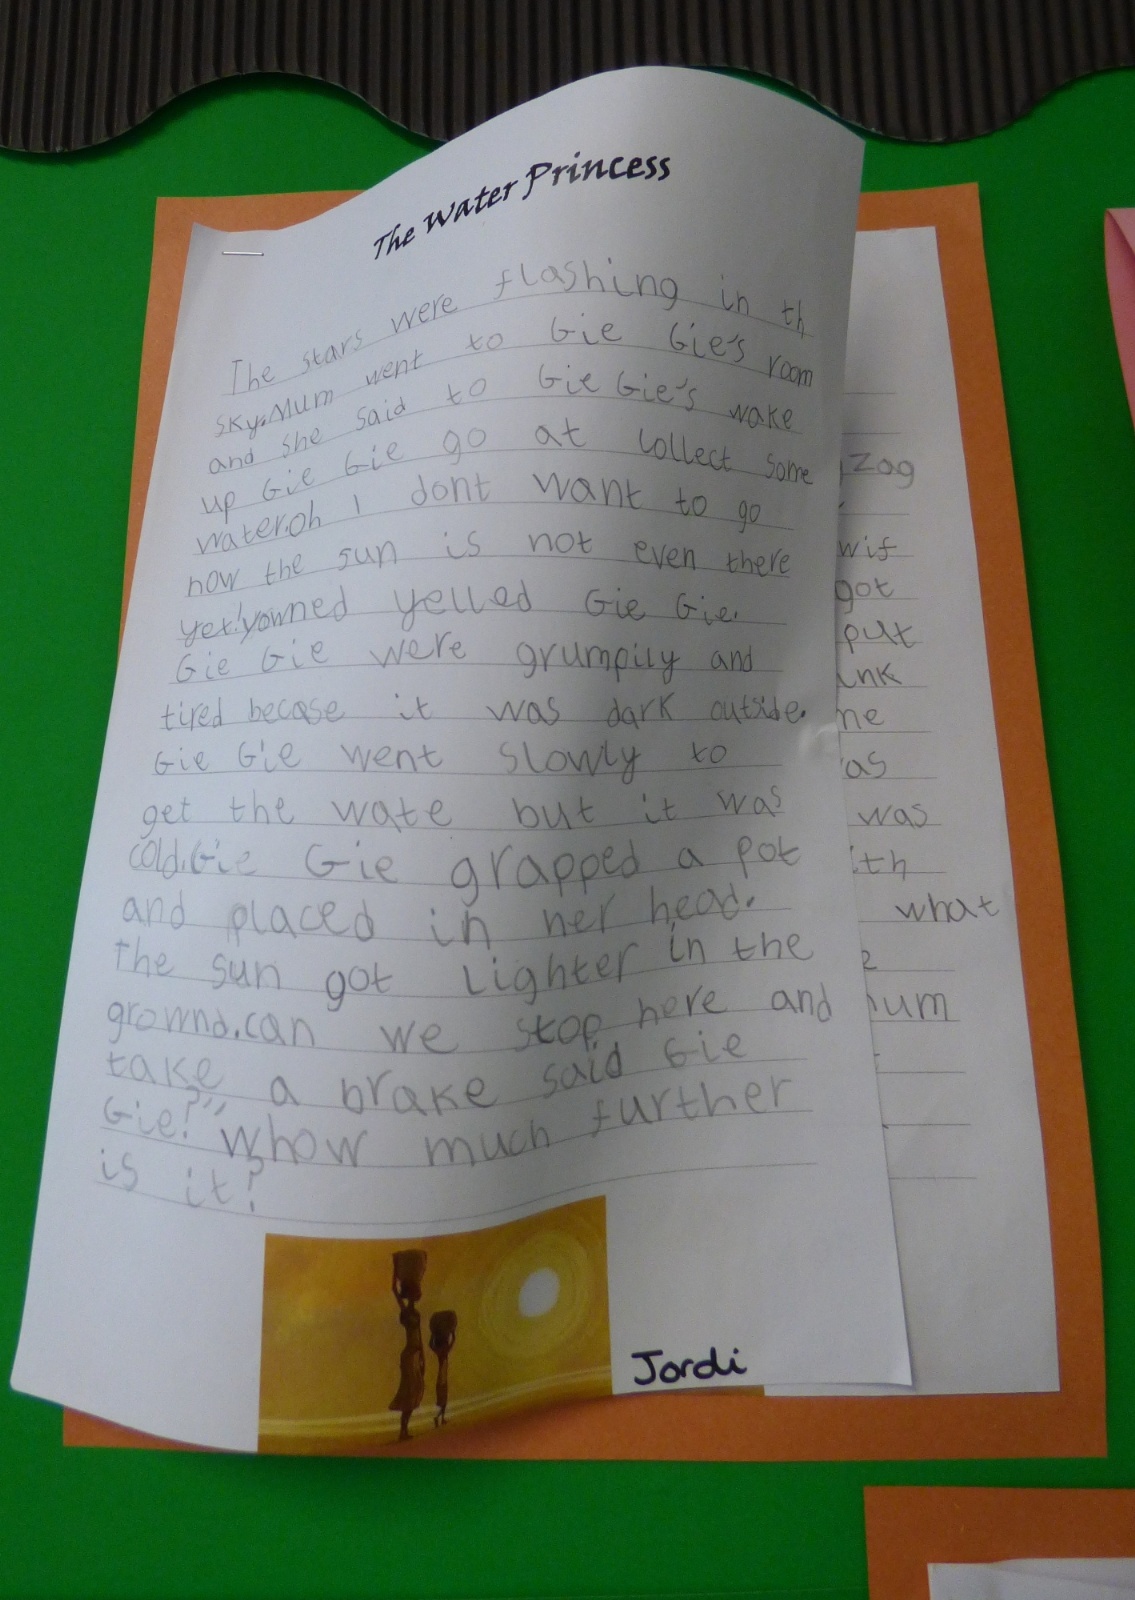 The Water Princess
The stars were flashing in th
sky.Mum went to Gie Gie's room
and she said to Gie Gie's wake
up Gie Gie go at collect some
water.oh I dont want to go
now the sun is not even there
yet!yowned yelled Gie Gie.
Gie Gie were grumpily and
tired becase it was dark outside.
Gie Gie went slowly to
get the wate but it was
cold.Gie Gie grapped a pot
and placed in her head.
The sun got Lighter in the
grownd.can we stop here and
take a brake said Gie
Gie?"" whow much further
is it?
Jordi
Zog
wif
got
put
ink
me
as
was
ith
what
e
mum